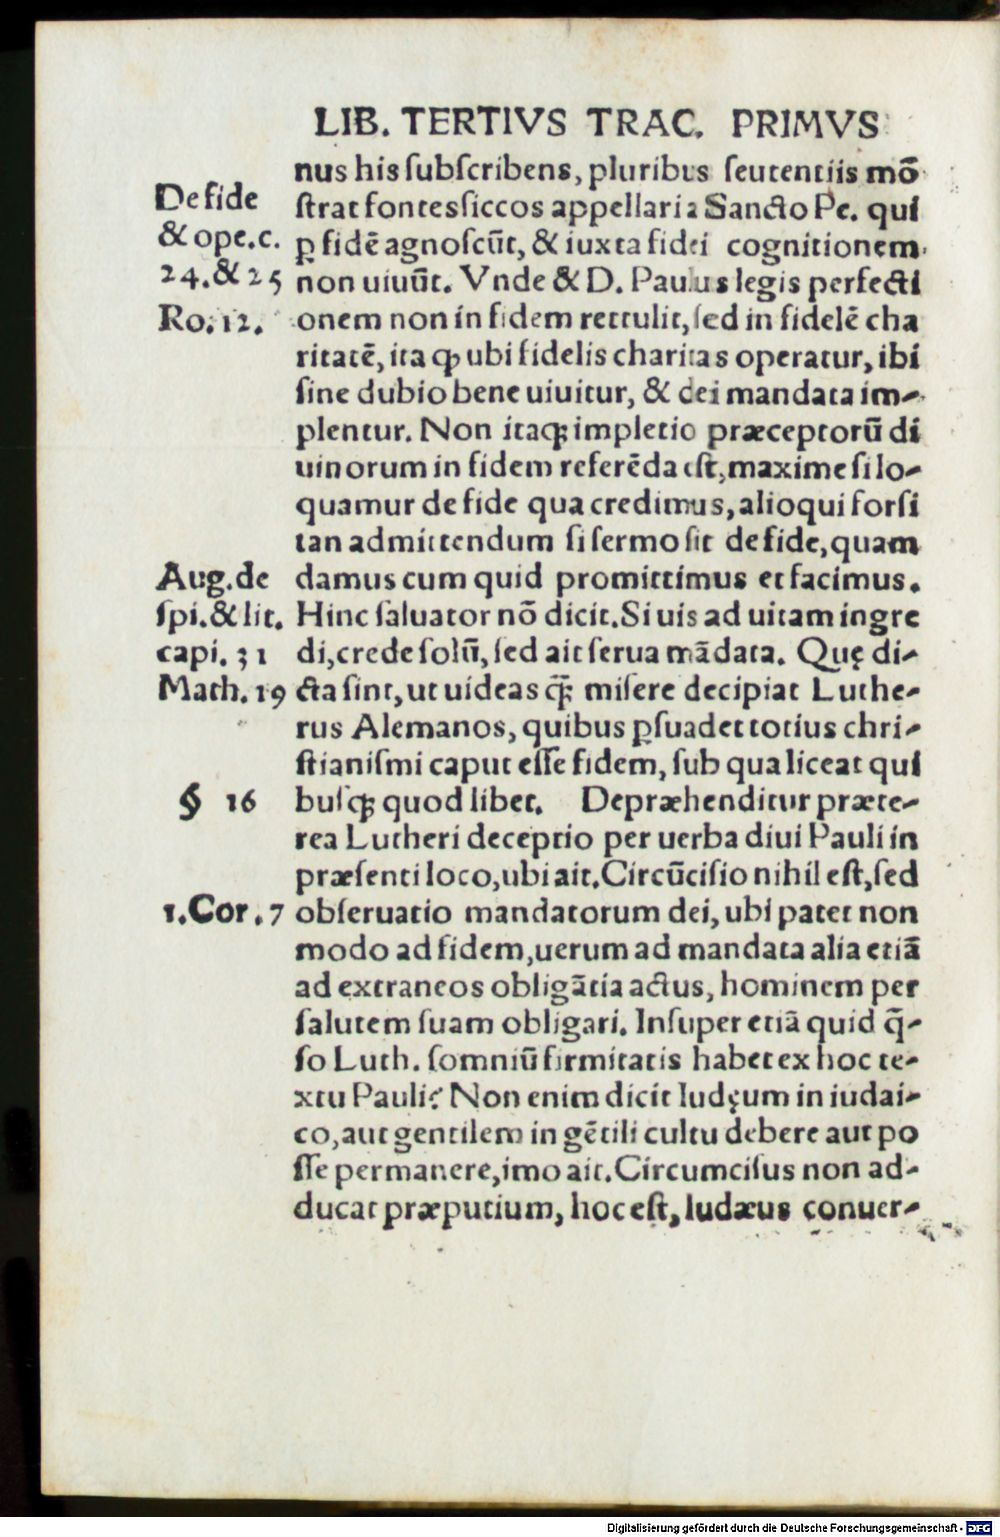 LIB. TERTIVS TRAC. PRIMVS
nus his ſubſcribens, pluribus ſeutentiis mō
De fide
ſtrat fontes ſiccos appellari a Sancto Pe. qui
& ope. c.
ꝑ fidē agnoſcūt, & iuxta fidei cognitionem
24. & 25
non uiuūt. Vnde & D. Paulus legis perfecti
Ro. 12.
onem non in fidem rettulit, ſed in fidelē cha
ritatē, ita ꝙ ubi fidelis charitas operatur, ibi
ſine dubio bene uiuitur, & dei mandata im-
plentur. Non itaqꝫ impletio præceptorū di
uinorum in fidem referēda eſt, maxime ſi lo-
quamur de fide qua credimus, alioqui forſi
tan admittendum ſi ſermo ſit de fide, quam
Aug. de
damus cum quid promittimus et facimus.
ſpi. & lit.
Hinc ſaluator nō dicit. Si uis ad uitam ingre
capi. 31
di, crede ſolū, ſed ait ſerua mādata. Quę di-
Math. 19
cta ſint, ut uideas ꝗ̃ miſere decipiat Luthe-
rus Alemanos, quibus ꝑſuadet totius chri-
ſtianiſmi caput eſſe fidem, ſub qua liceat qui
§ 16
buſqꝫ quod libet. Depræhenditur præte-
rea Lutheri deceptio per uerba diui Pauli in
præſenti loco, ubi ait. Circūciſio nihil eſt, ſed
1. Cor. 7
obſeruatio mandatorum dei, ubi patet non
modo ad fidem, uerum ad mandata alia etiā
ad extraneos obligātia actus, hominem per
ſalutem ſuam obligari. Inſuper etiā quid q̄-
ſo Luth. ſomniū firmitatis habet ex hoc te-
xtu Pauli? Non enim dicit Iudęum in iudai-
co, aut gentilem in gētili cultu debere aut po
ſſe permanere, imo ait. Circumciſus non ad-
ducat præputium, hoc eſt, Iudæus conuer-
Digitalisierung gefördert durch die Deutsche Forschungsgemeinschaft - DFG